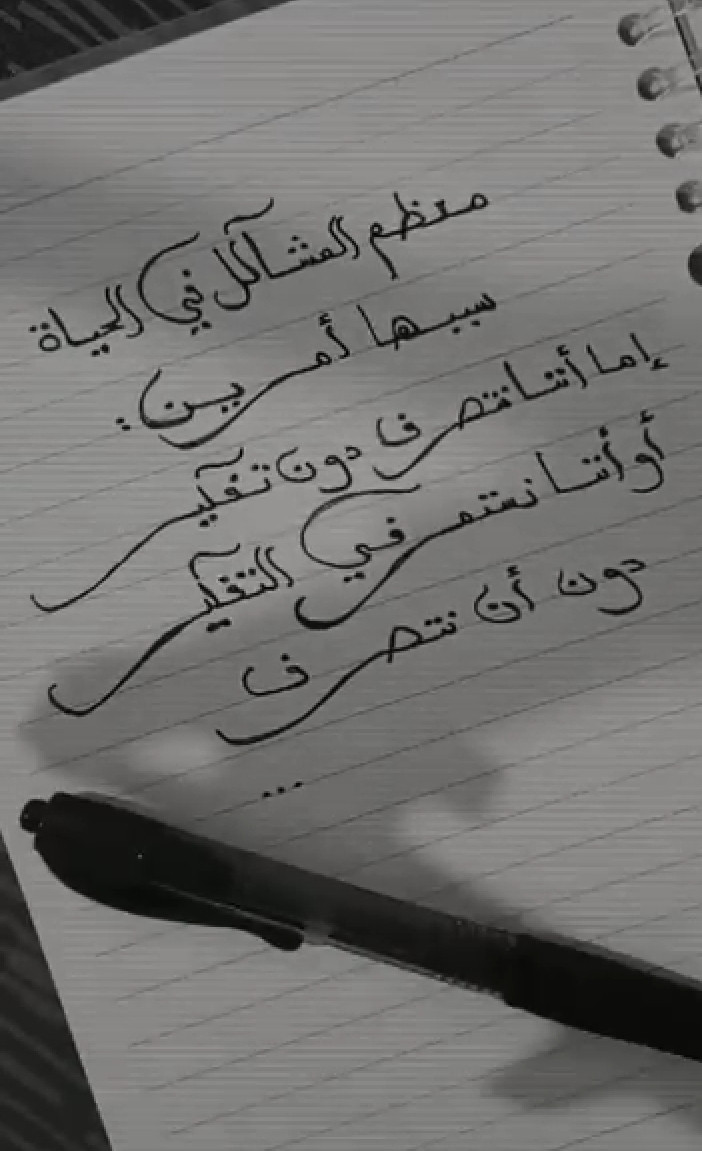 معظم المشاكل في الحياة
سببها أمرين:
إما أننا نتصرف دون تفكير
أو أننا نستمر في التفكير
دون أن نتصرف
...